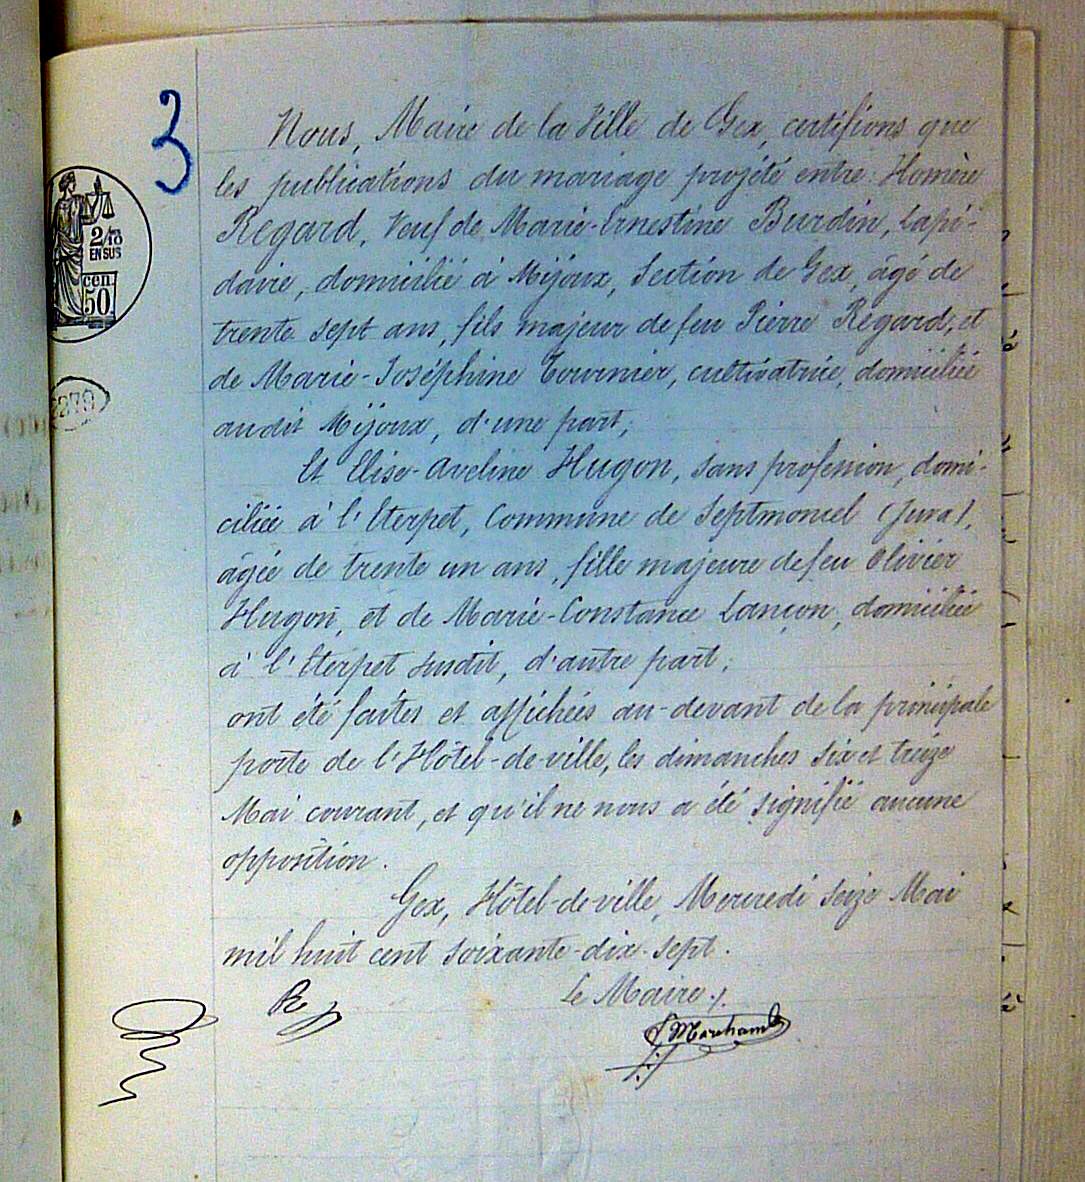 3
Nous, Maire de la Ville de Gex, certifions que
les publications du mariage projété entre : Homère
Regard, Veuf de Marie-Ernestine Burdin, Lapi-
daire, domicilié à Mijoux, Section de Gex, âgé de
trente sept ans, fils majeur de feu Pierre Regard, et
de Marie-Joséphine Tournier, cultivatrice, domiciliée
audit Mijoux, d'une part;
Et Elise-Aveline Hugon, sans profession, domi-
ciliée à l'Eterpet, Commune de Septmoncel (Jura),
âgée de trente un ans, fille majeure de feu Olivier
Hugon, et de Marie-Constance Lançon, domiciliée
à l'Eterpet susdit, d'autre part;
ont été faites et affichées au-devant de la principale
porte de l'Hôtel-de-ville, les dimanches six et treize
Mai courant, et qu'il ne nous a été signifié aucune
opposition.
Gex, Hôtel-de-ville, Mercredi seize Mai
mil huit cent soixante-dix-sept.
Le Maire
2/10
EN SUS
cen.
50.
279